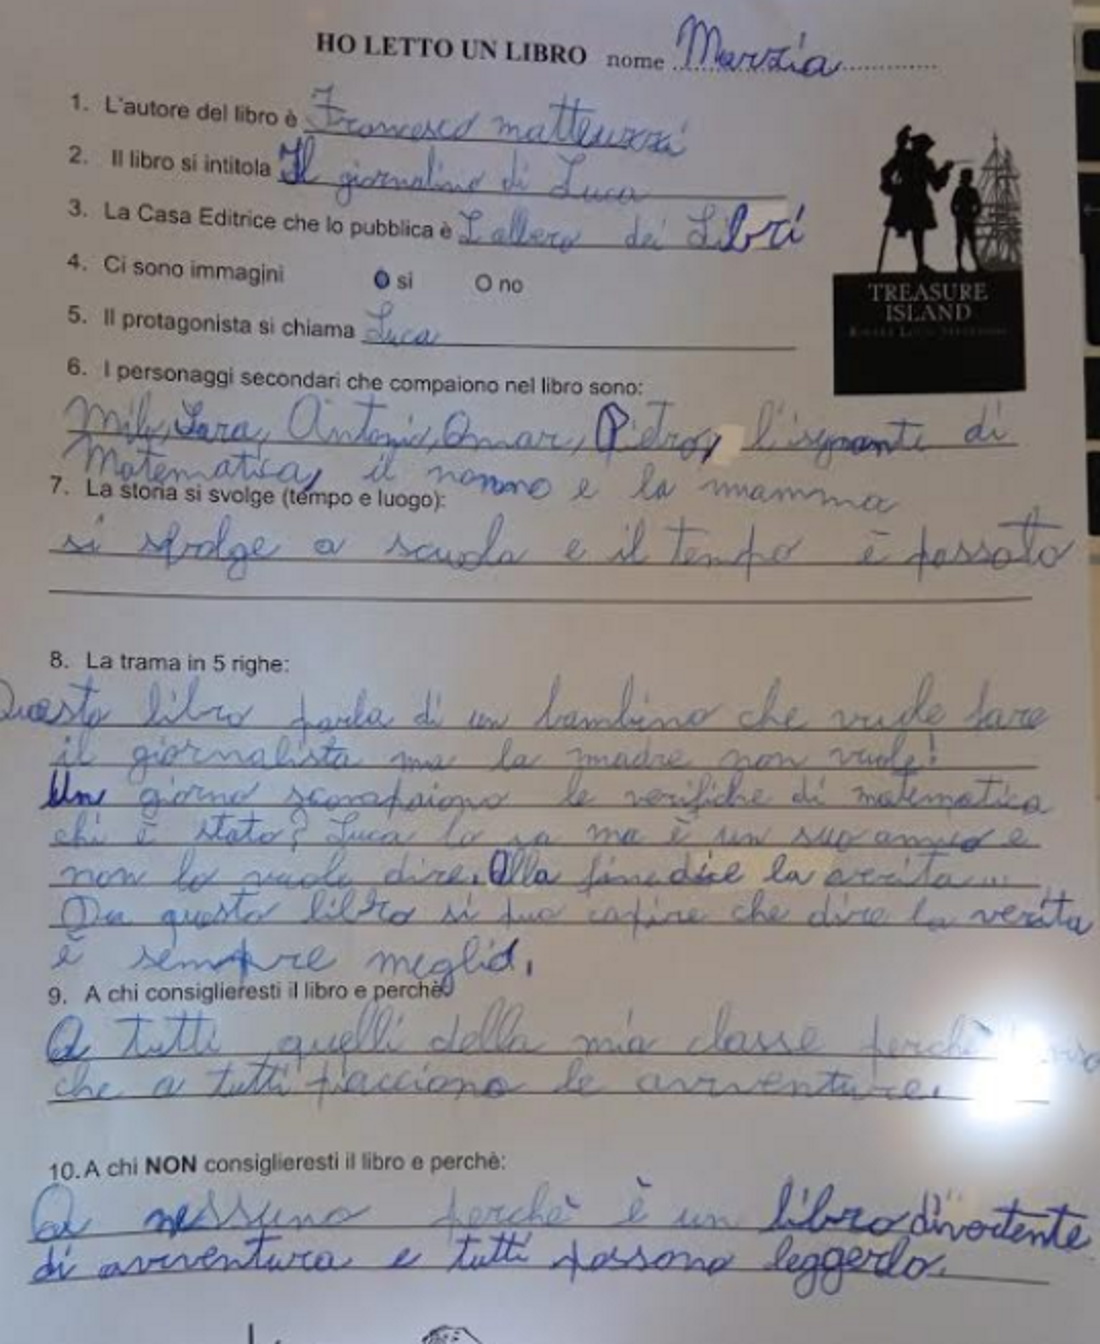 HO LETTO UN LIBRO nome Marzia
1. L'autore del libro è Francesco matteuzzi
2. Il libro si intitola Il giornalino di Luca
3. La Casa Editrice che lo pubblica è L'albero dei Libri
4. Ci sono immagini si no
5. Il protagonista si chiama Luca
TREASURE
ISLAND
6. I personaggi secondari che compaiono nel libro sono:
Mily, Sara, Antonio, Omar, Pietro, l'isgnante di
Matematica, il nonno e la mamma
7. La storia si svolge (tempo e luogo):
si svolge a scuola e il tempo è passato
8. La trama in 5 righe:
Questo libro parla di un bambino che vuole fare
il giornalista ma la madre non vuole!
Un giorno scompaiono le verifiche di matematica
chi è stato? Luca lo sa ma è un suo amico e
non lo vuole dire. Alla fine dice la verita....
Da questo libro si puo capire che dire la verita
è sempre meglio.
9. A chi consiglieresti il libro e perchè:
A tutti quelli della mia classe perchè
che a tutti piacciono le avventure.
10. A chi NON consiglieresti il libro e perchè:
A nessuno perchè è un libro divertente
di avventura e tutti possono leggerlo.